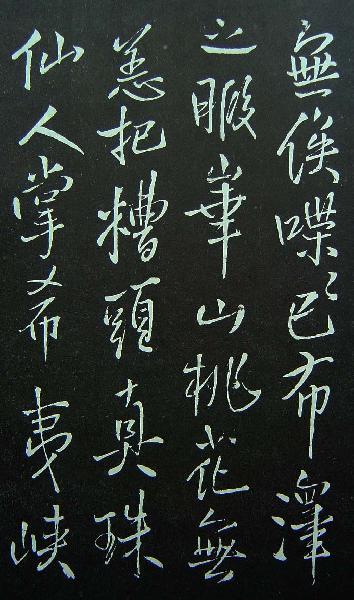 無俟喋〻已布澤
之暇崋山桃花無
恙把糟頭真珠
仙人掌希夷峽